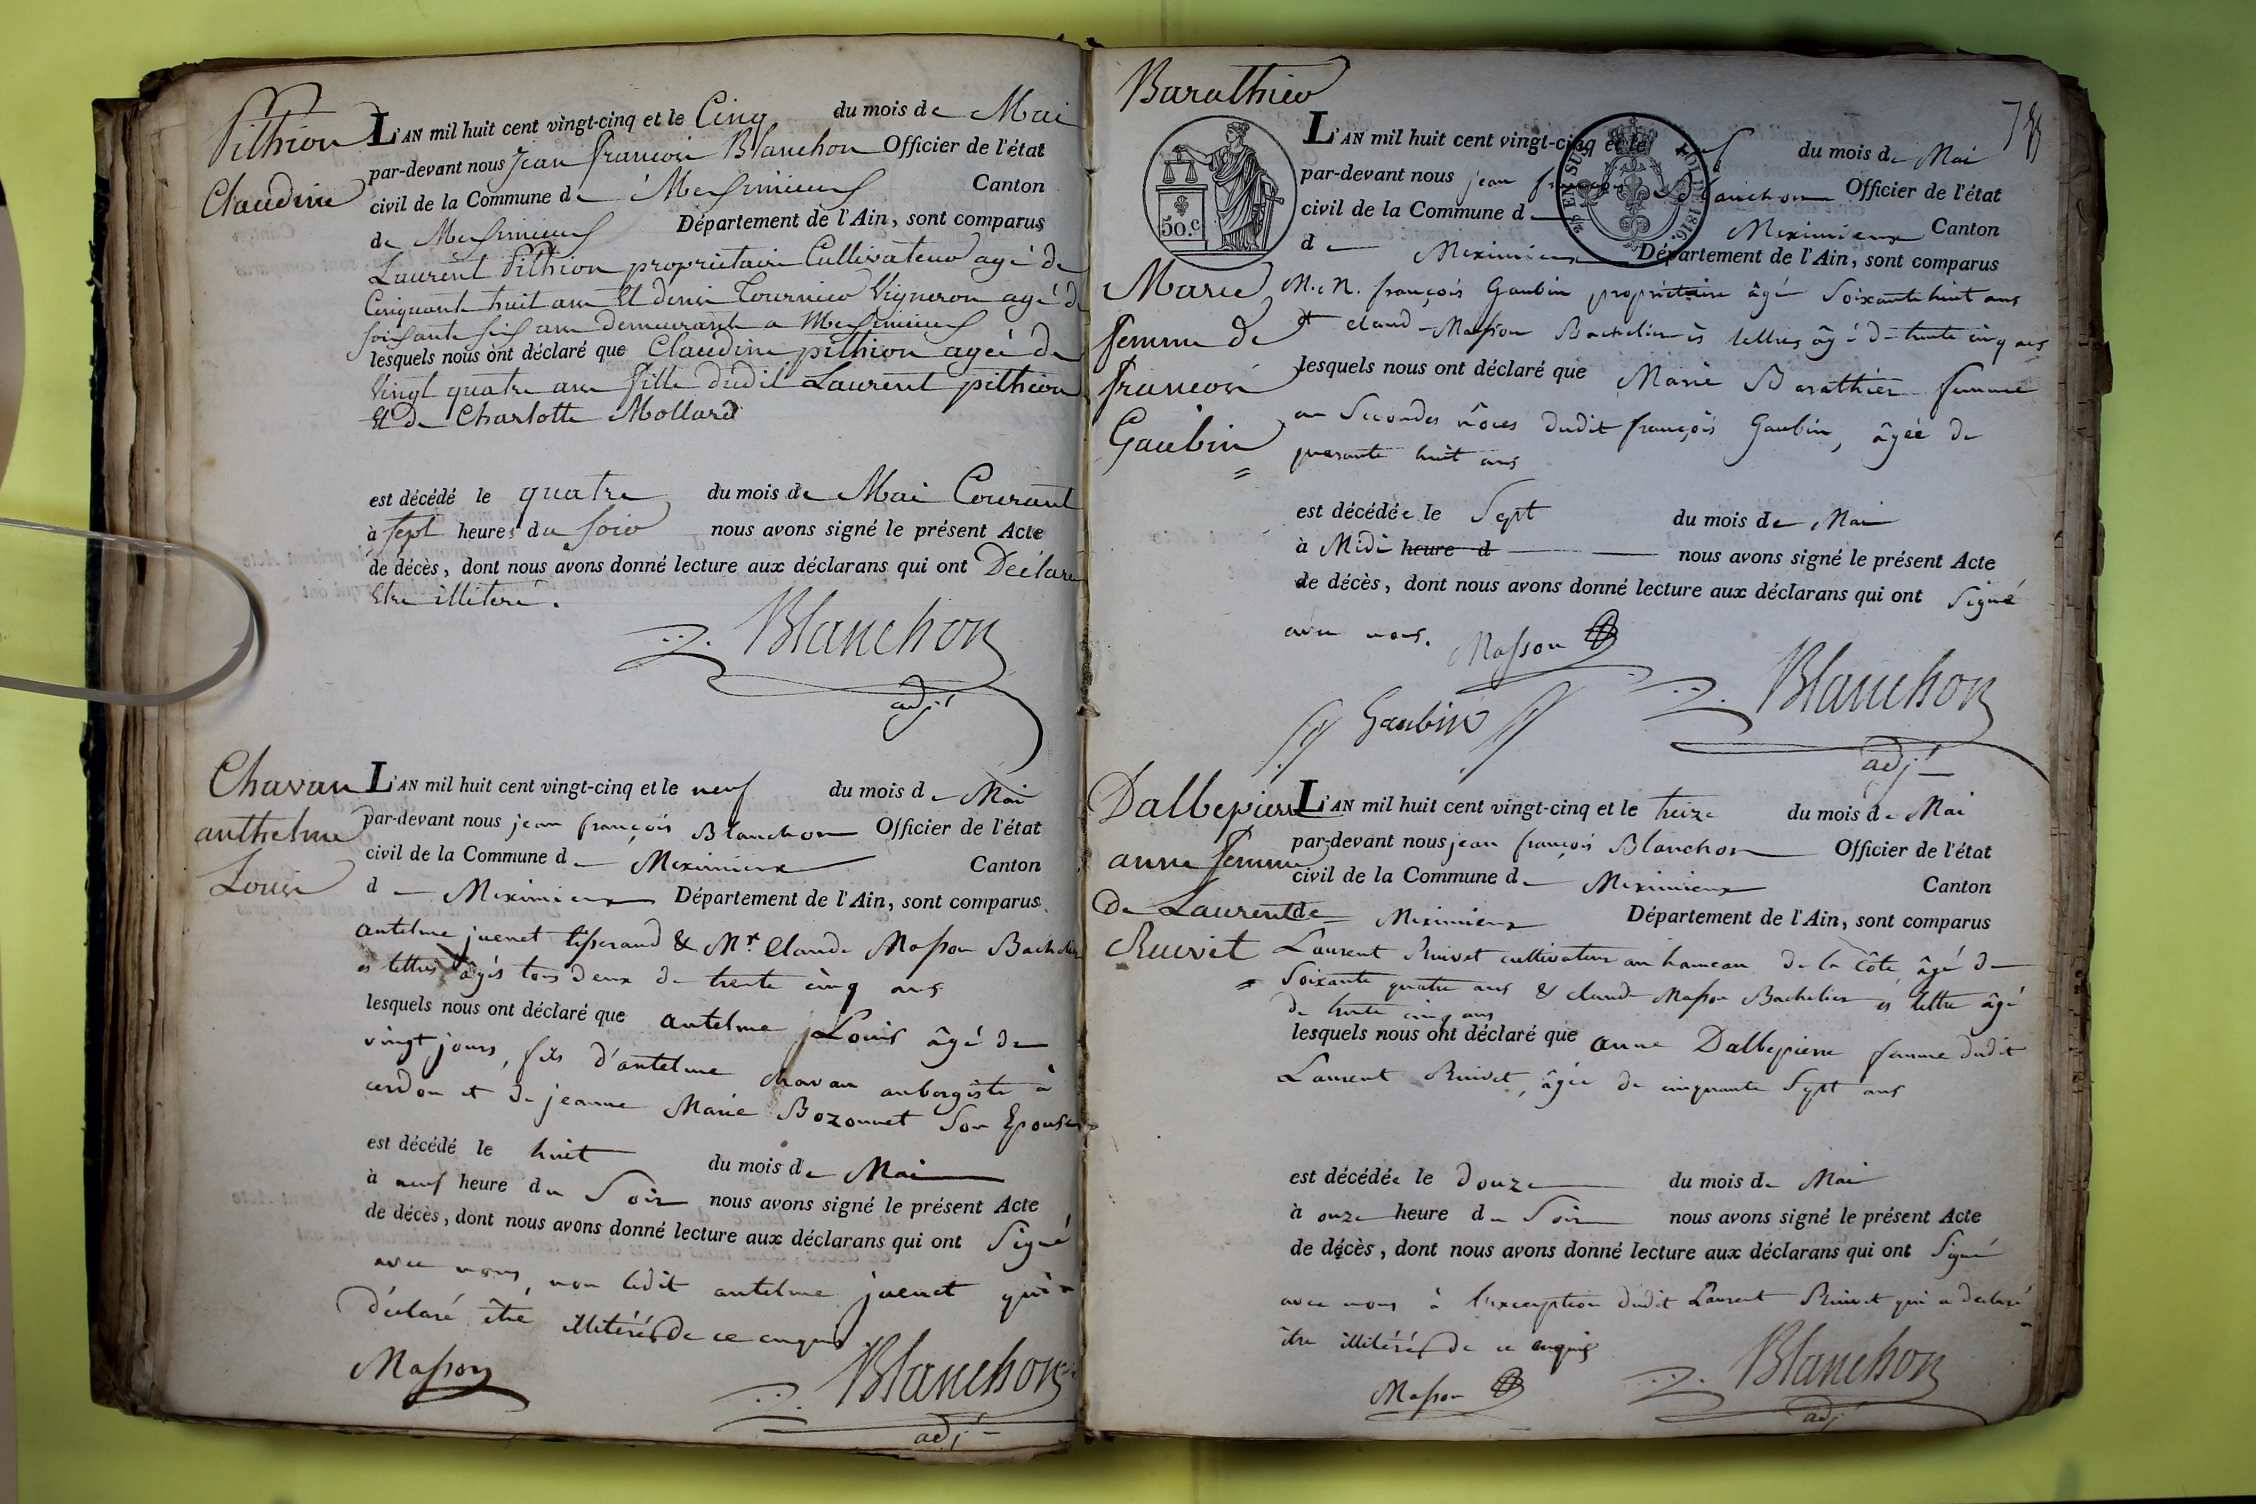 Pithion
Claudine
L'AN mil huit cent vingt-cinq et le Cinq du mois de Mai
par-devant nous Jean francois Blanchon Officier de l'état
civil de la Commune de Meximieux Canton
de Meximieux Département de l'Ain, sont comparus
Laurent Pithion propriétaire Cultivateur agé de
Cinquante huit ans Et denis Tournier Vigneron agé de
soixante six ans demeurants a Meximieux
lesquels nous ont déclaré que Claudine pithion ageé de
Vingt quatre ans fille dudit Laurent pithion
Et de Charlotte Mollard
est décédé le quatre du mois de Mai Courant
à sept heures du soir nous avons signé le présent Acte
de décès, dont nous avons donné lecture aux déclarans qui ont Déclaré
Etre illiteré.
Blanchon
adj.t
Chavan
anthelme
Louis
L'AN mil huit cent vingt-cinq et le neuf du mois de Mai
par-devant nous jean françois Blanchon Officier de l'état
civil de la Commune de Meximieux Canton
de Meximieux Département de l'Ain, sont comparus
antelme juenet tisserand & Mr. Claude Masson Bachelier
es lettres âgés tous deux de trente cinq ans
lesquels nous ont déclaré que antelme Louis âgé de
vingt jours, fils d'antelme chavan aubergiste à
cerdon et de jeanne Marie Bozonnet Son Epouse
est décédé le huit du mois de Mai
à neuf heure du Soir nous avons signé le présent Acte
de décès, dont nous avons donné lecture aux déclarans qui ont Signé
avec nous, non ledit antelme juenet qui a
déclaré être illitéré de ce enquis
Masson
Blanchon
adj.t
Barathier
78
50.c
EN SUS
LOI DE 1816.
Marie
femme de
francois
Gaubin
L'AN mil huit cent vingt-cinq et le neuf du mois de Mai
par-devant nous jean françois Blanchon Officier de l'état
civil de la Commune de Meximieux Canton
de Meximieux Département de l'Ain, sont comparus
M.M. françois Gaubin propriétaire âgé Soixante huit ans
et claude Masson Bachelier ès lettres âgé de trente cinq ans
lesquels nous ont déclaré que Marie Barathier femme
en Secondes nôces dudit françois Gaubin, âgée de
quarante huit ans
est décédée le Sept du mois de Mai
à Midi heure d nous avons signé le présent Acte
de décès, dont nous avons donné lecture aux déclarans qui ont Signé
avec nous.
Masson
Gaubin
Blanchon
adj.t
Dalbepierre
anne femme
de Laurent
Ruivet
L'AN mil huit cent vingt-cinq et le treize du mois de Mai
par-devant nous jean françois Blanchon Officier de l'état
civil de la Commune de Meximieux Canton
de Meximieux Département de l'Ain, sont comparus
Laurent Ruivet cultivateur au hameau de la Côte âgé de
Soixante quatre ans & claude Masson Bachelier ès lettre âgé
de trente cinq ans
lesquels nous ont déclaré que anne Dalbepierre femme dudit
Laurent Ruivet, âgée de cinquante Sept ans
est décédée le douze du mois de Mai
à onze heure du Soir nous avons signé le présent Acte
de décès, dont nous avons donné lecture aux déclarans qui ont Signé
avec nous à l'exception dudit Laurent Ruivet qui a déclaré
être illitéré de ce enquis
Masson
Blanchon
adj.t